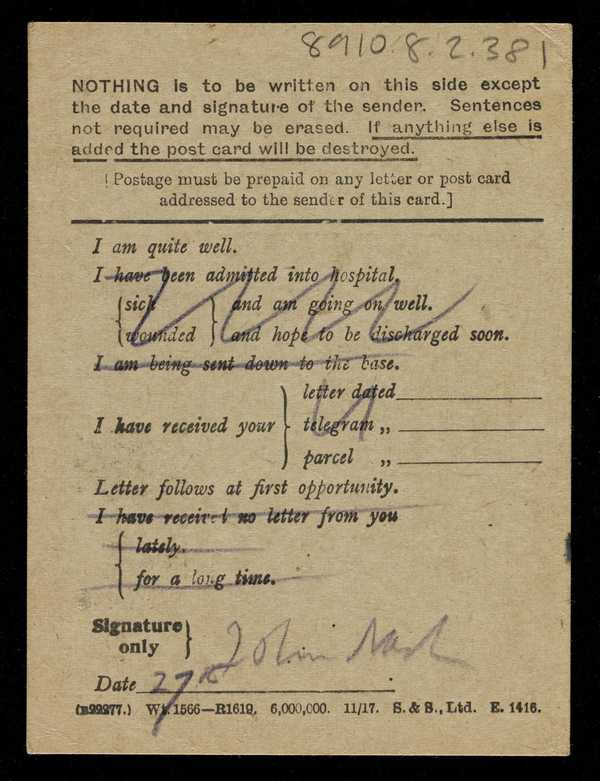 8910.8.2.381
NOTHING is to be written on this side except
the date and signature of the sender. Sentences
not required may be erased. If anything else is
added the post card will be destroyed.
[Postage must be prepaid on any letter or post card
addressed to the sender of this card.]
I am quite well.
I have been admitted into hospital.
{sick } and am going on well.
{wounded } and hope to be discharged soon.
I am being sent down to the base.
letter dated
I have received your } telegram „
parcel „
Letter follows at first opportunity.
I have received no letter from you
{ lately.
for a long time.
Signature }
only
John Nash
Date 27th
Wt. 1566—R1619. 6,000,000. 11/17. S. & S., Ltd. E. 1416.